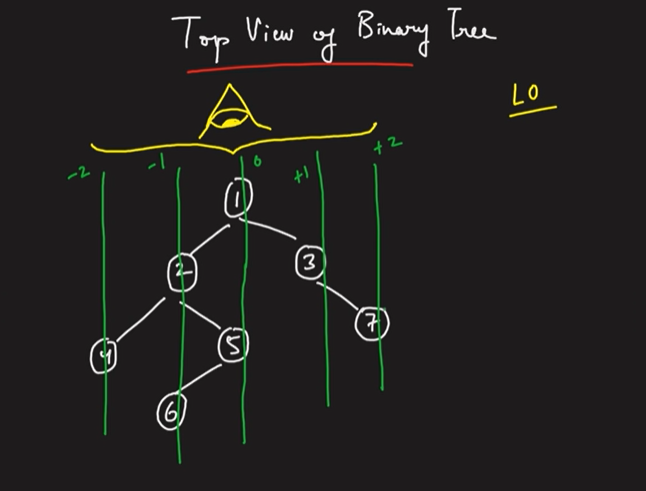 Top View of Binary Tree
LO
-2 -1 0 +1 +2
1
2 3
7
4 5
6